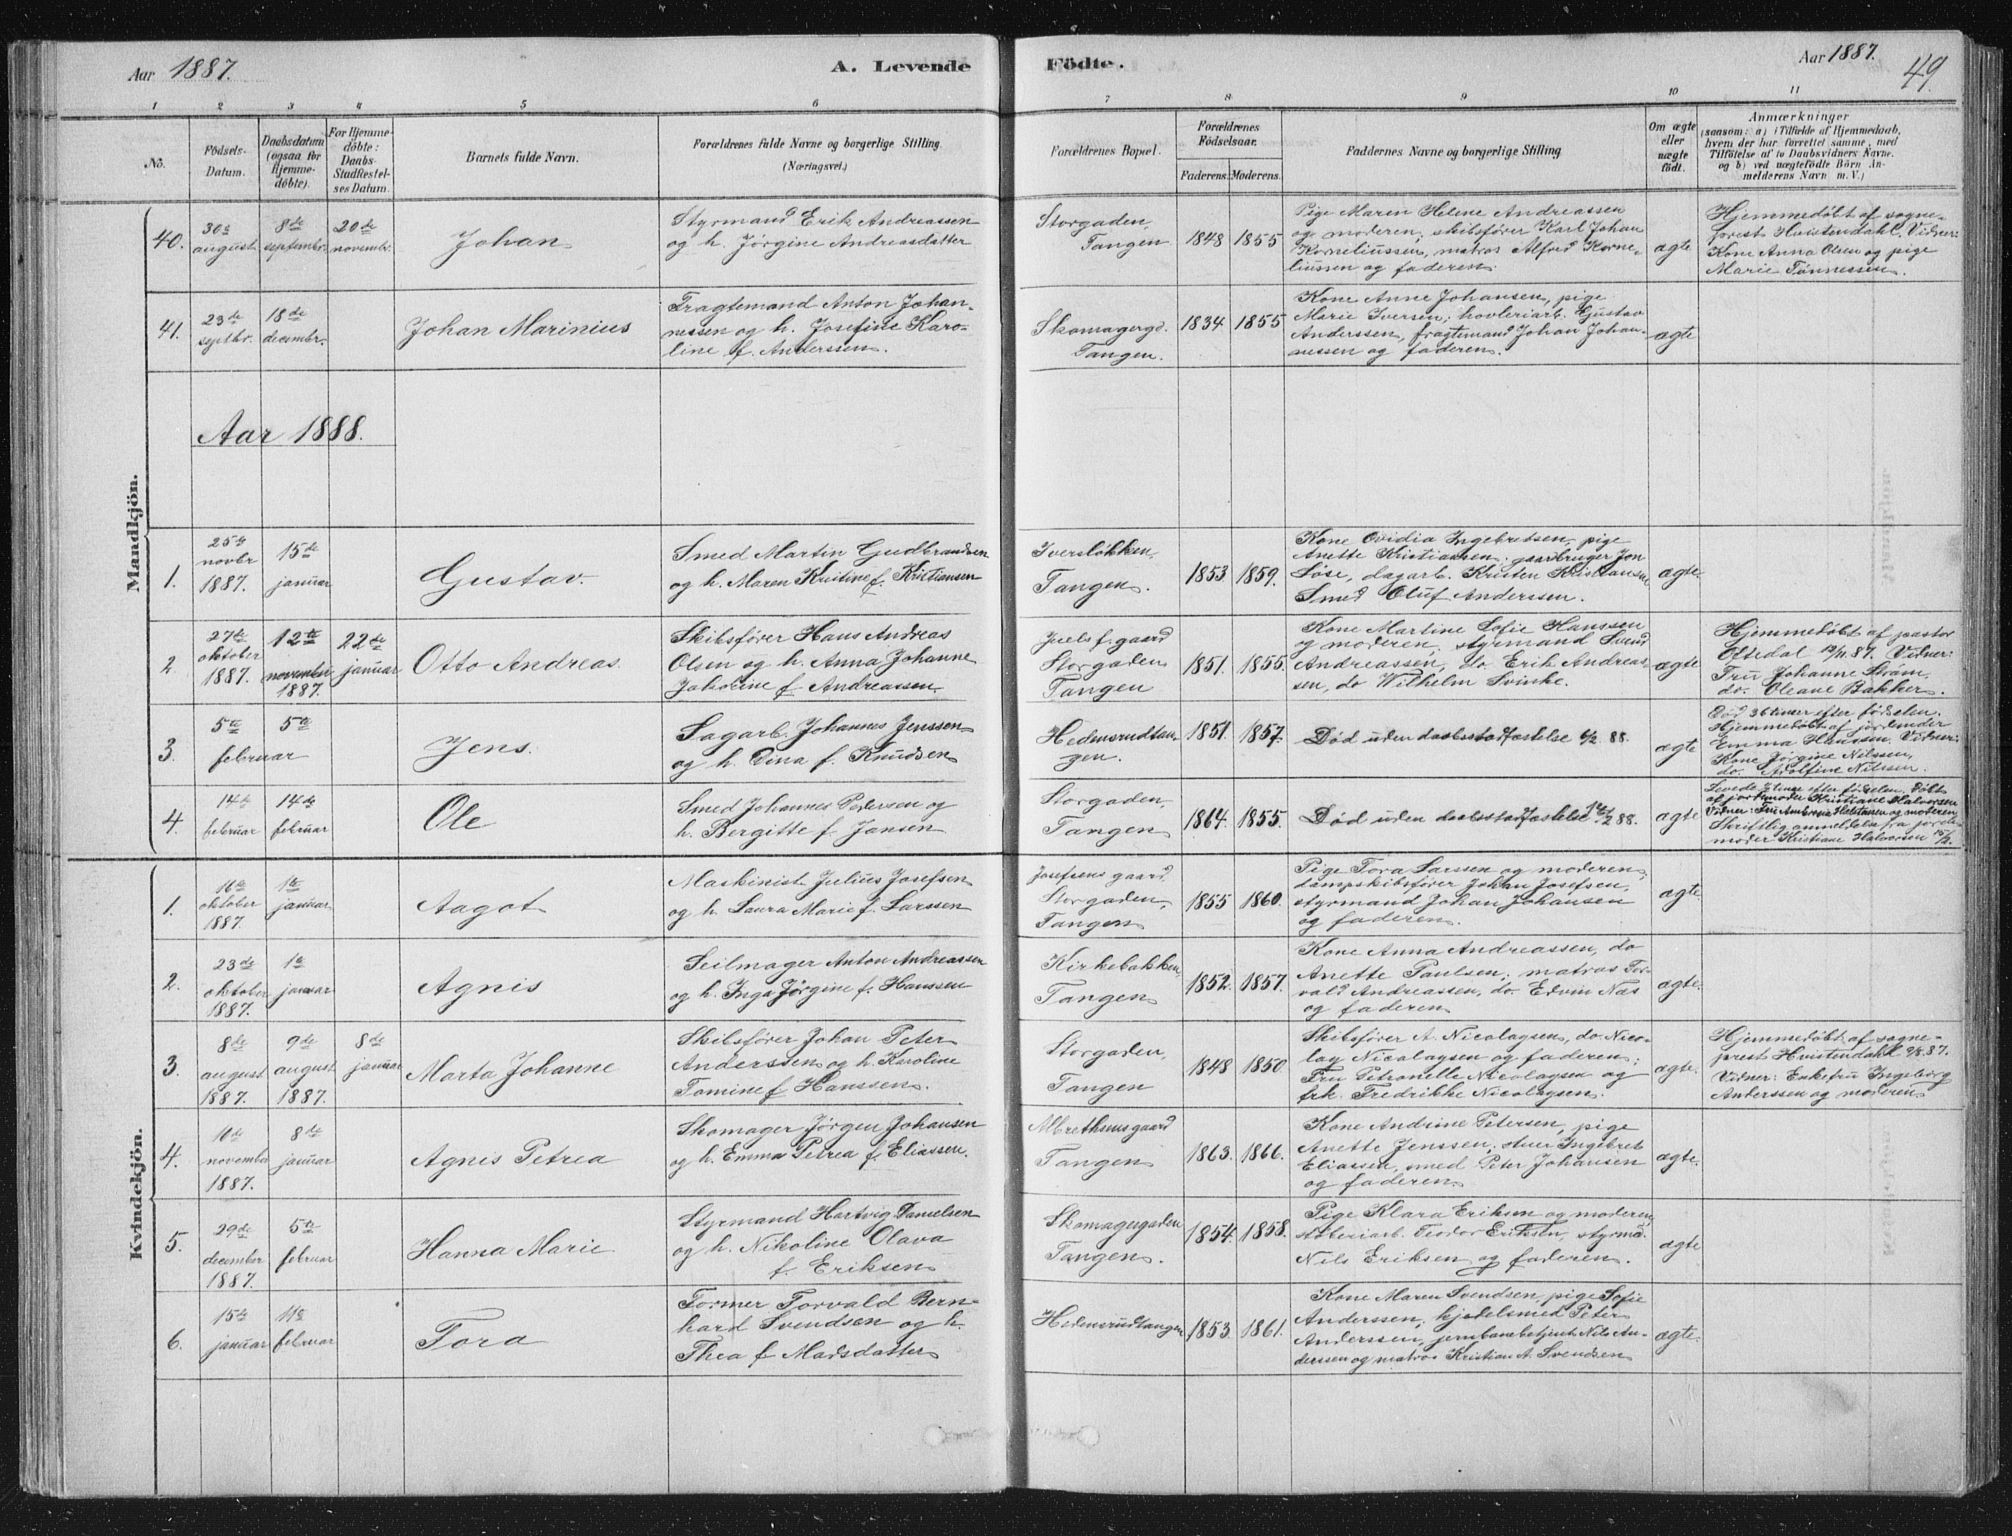 Aar 1887.
A. Levende
Födte.
Aar 1887.
49
1 2 3 4 5 6 7 8 9 10 11
No.
Födsels-
Datum.
Daabsdatum
(ogsaa for
Hjemme-
döbte).
For Hjemme-
döbte:
Daabs-
Stadfæstel-
ses Datum.
Barnets fulde Navn.
Forældrenes fulde Navne og borgerlige Stilling
(Næringsvei.)
Forældrenes Bopæl.
Forældrenes
Födselsaar.
Faderens. Moderens.
Faddernes Navne og borgerlige Stilling
Om ægte
eller
uægte
födt.
Anmærkninger
(saasom: a) i Tilfælde af Hjemmedaab,
hvem der har forrettet samme, med
Tilföielse af to Daabsvidners Navne.
og b) ved uægtefödte Börn An-
melderens Navn m. V.)
Mandkjön.
40.
30te
august
8de
septembr.
20de
novembr.
Johan
Styrmand Erik Andreassen
og h. Jørgine Andreasdatter
Storgaden,
Tangen
1848 1855
Pige Maren Helene Andreassen
og moderen, skibsfører Karl Johan
Korneliussen, matros Alfred Korne-
liussen og faderen.
ægte
Hjemmedøbt af sogne-
prest Hvistendahl. Vidner:
Kone Anna Olsen og pige
Marie Tønnessen.
41.
23de
septbr.
18de
decembr.
Johan Marinius
Fragtemand Anton Johan-
nessen og h. Josefine Karo-
line f. Anderssen.
Skomagergd.
Tangen.
1834 1855
Kone Anne Johansen, pige
Marie Iversen; høvleriarb. Gustav
Anderssen, fragtemand Johan Johan-
nessen og faderen.
ægte
Aar 1888.
1.
25de
novbr
1887.
15de
januar
Gustav.
Smed Martin Gudbrandsen
og h. Maren Kristine f. Kristiansen
Iversløkken,
Tangen.
1853 1859.
Kone Ovidia Ingebretsen, pige
Anette Kristiansen; gaardbruger Jon
Løse, dagarb. Kristen Kristiansen
Smed Oluf Anderssen.
ægte.
2
27de
oktober
1887.
12te
november
1887.
22de
januar
Otto Andreas.
Skibsfører Hans Andreas
Olsen og h. Anna Johanne
Jahorine f. Andreassen
gaard
Storgaden
Tangen
1851. 1855.
Kone Martine Sofie Hanssen
og moderen; styrmand Svend
Andreassen, do. Erik Andreas-
sen, do Wilhelm Svinke.
ægte
Hjemmedøbt af pastor
Oltedal 12/11.87. Vidner:
Fru Johanne Strøm,
do. Oleane Bakker.
3.
5te
februar
5te
Jens.
Sagarb. Johannes Jenssen
og h. Dina f. Knudsen
Hedensrudtan-
gen.
1851. 1857.
Død uden daabsstadfæstelse 6/2 88.
ægte
Død 36 timer efter fødselen.
Hjemmedøbt af jordmoder
Emma Hanssen, Vidner:
Kone Jørgine Nilssen,
do. Adolfine Nilssen.
4.
14de
februar
14de
februar
Ole
Smed Johannes Pedersen og
h. Bergitte f. Jansen
Storgaden,
Tangen
1864. 1855.
Død uden daabsstadfæstelse 14/2 88.
ægte
Levede 2 timer efter fødselen. Døbt
af jordemoder Kristiane Halvorsen
Vidner: og moderen
Skriftlig anmeldelse fra jorde-
moder Kristiane Halvorsen 15/2.
Kvindekjön.
1.
16de
oktober
1887.
1te
januar
Aagot
Maskinist Julius Josefsen
og h. Laura Marie f. Larssen
Josefsens gaard
Storgaden,
Tangen
1855 1860.
Pige Tora Larssen og moderen,
dampskibsfører Johan Josefsen,
styrmand Johan Johansen
og faderen.
ægte.
2.
23de
oktober
1887.
1te
januar
Agnis
Seilmager Anton Andreassen
og h. Inga Jørgine f. Hanssen
Kirkebakken,
Tangen
1852. 1857.
Kone Anna Andreassen, do
Anette Paulsen; matros Tor-
vald Andreassen, do. Edvin Næs
og faderen
ægte.
3.
8de
august
1887.
9de
august
1887.
8de
januar
Marta Johanne
Skibsfører Johan Peter
Anderssen og h. Karoline
Tomine f. Hanssen.
Storgaden,
Tangen
1848 1850
Skibsfører A. Nicolaysen, do. Nico-
lay Nicolaysen og faderen;
Fru Petronelle Nicolaysen og
frk. Fredrikke Nicolaysen.
ægte.
Hjemmedøbt af sogne-
prest Hvistendahl 9/8.87.
Vidner: Enkefru Ingeborg
Anderssen og moderen
4.
10de
november
1887.
8de
januar
Agnis Petrea
Skomager Jørgen Johansen
og h. Emma Petrea f. Eliassen.
Albrethsensgaard
Tangen
1863. 1866.
Kone Andrine Petersen, pige
Anette Jenssen; stuer Ingebret
Eliassen, smed Peter Johansen
og faderen.
ægte.
5.
29de
december
1887.
5te
februar
Hanna Marie
Styrmand Hartvig Danielsen
og h. Nikoline Olava
f. Eriksen
Skomagergaden
Tangen.
1854. 1858.
Pige Klara Eriksen og moderen,
støberiarb. Teodor Eriksen, styrmd.
Nils Eriksen og faderen.
ægte
6.
15de
januar
11te
februar
Tora
Former Torvald Bern-
hard Svendsen og h.
Thea f. Madsdatter
Hedensrudtangen
1853. 1861.
Kone Maren Svendsen, pige Sofie
Anderssen, kjedelsmed Peter
Anderssen, jernbanebetjent Nils An-
derssen og matros Kristian A. Svendsen
ægte.